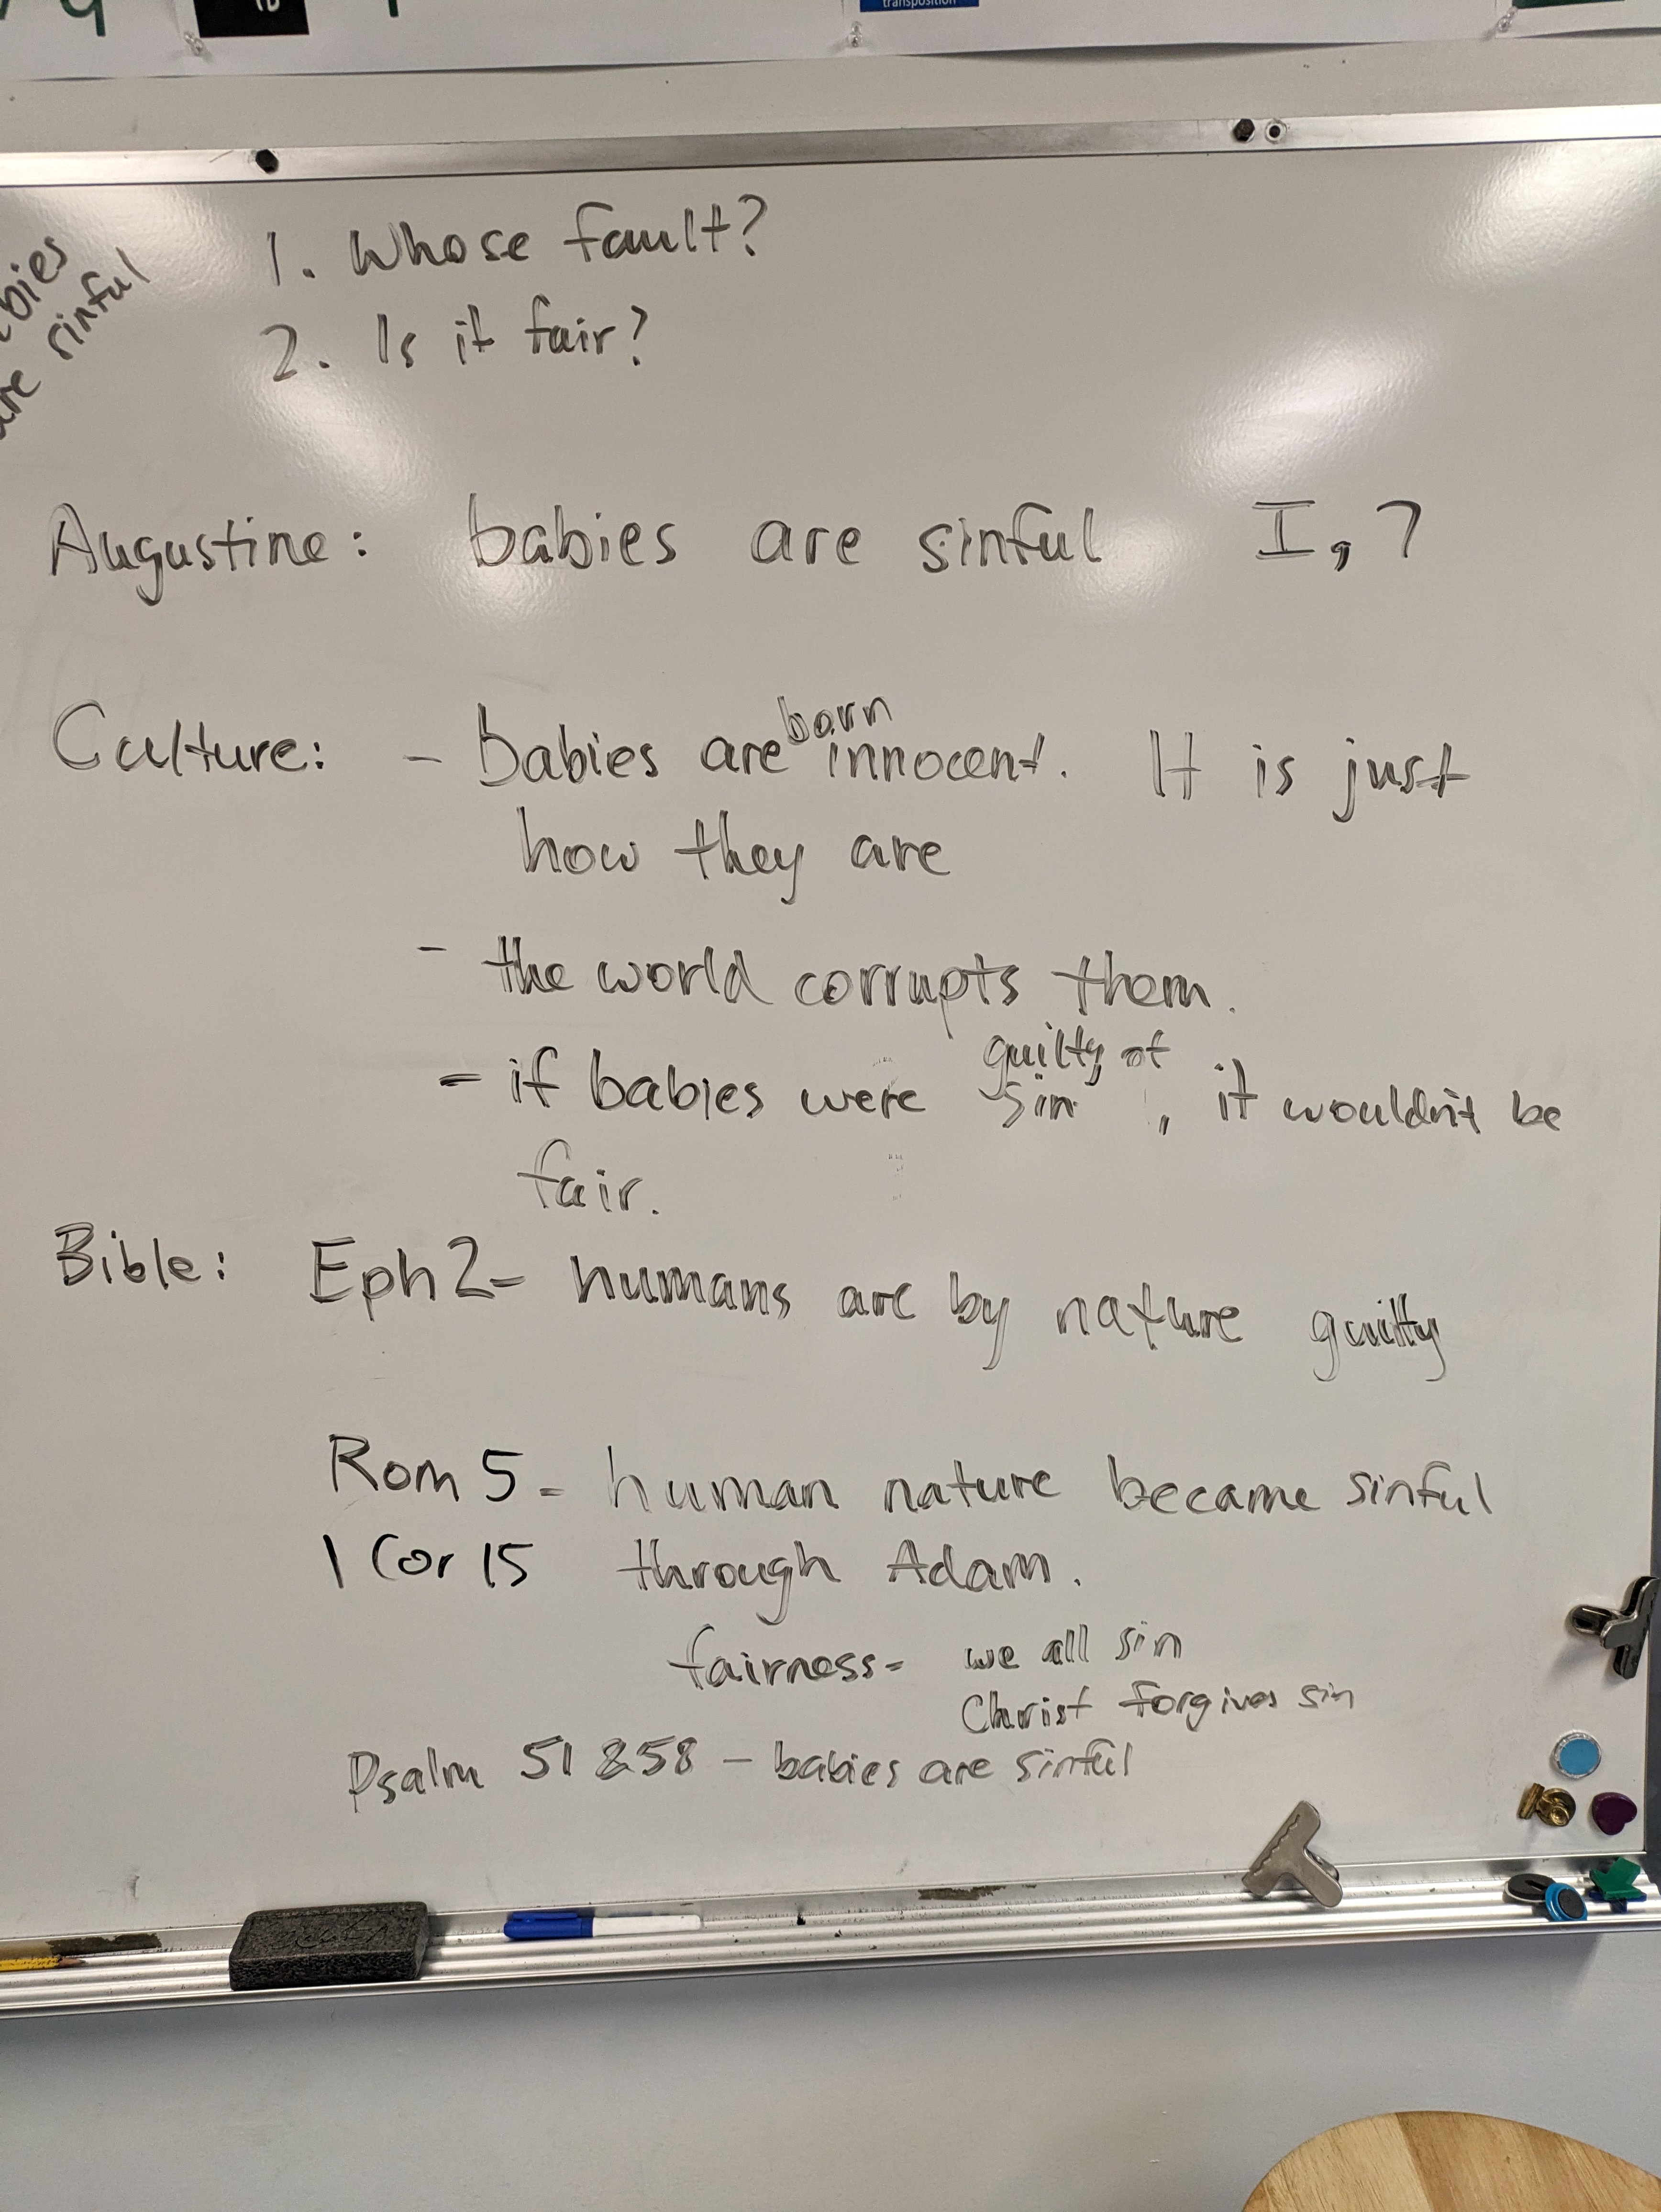 transposition
bies
are sinful
1. Whose fault?
2. Is it fair?
Augustine: babies are sinful I, 7
Culture: - babies are born innocent. It is just
how they are
- the world corrupts them.
- if babies were guilty of sin, it wouldn't be
fair.
Bible: Eph 2 - humans are by nature guilty
Rom 5 - human nature became sinful
1 Cor 15 through Adam.
fairness - we all sin
Christ forgives sin
Psalm 51 & 58 - babies are sinful